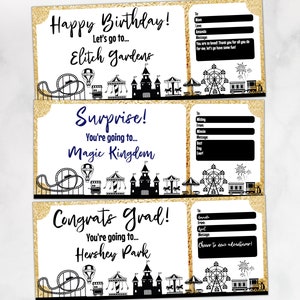 Happy Birthday!
Let's go to...
Elitch Gardens
To
Mom
Love
From
Amanda
Message
You are so loved! Thank you for all you do
for me; let's go have some fun!
Surprise!
You're going to...
Magic Kingdom
To
From
Message
Best
Day
Ever!
Congrats Grad!
You're going to...
Hershey Park
To
Amanda
From
April
Message
Cheers to new adventures!